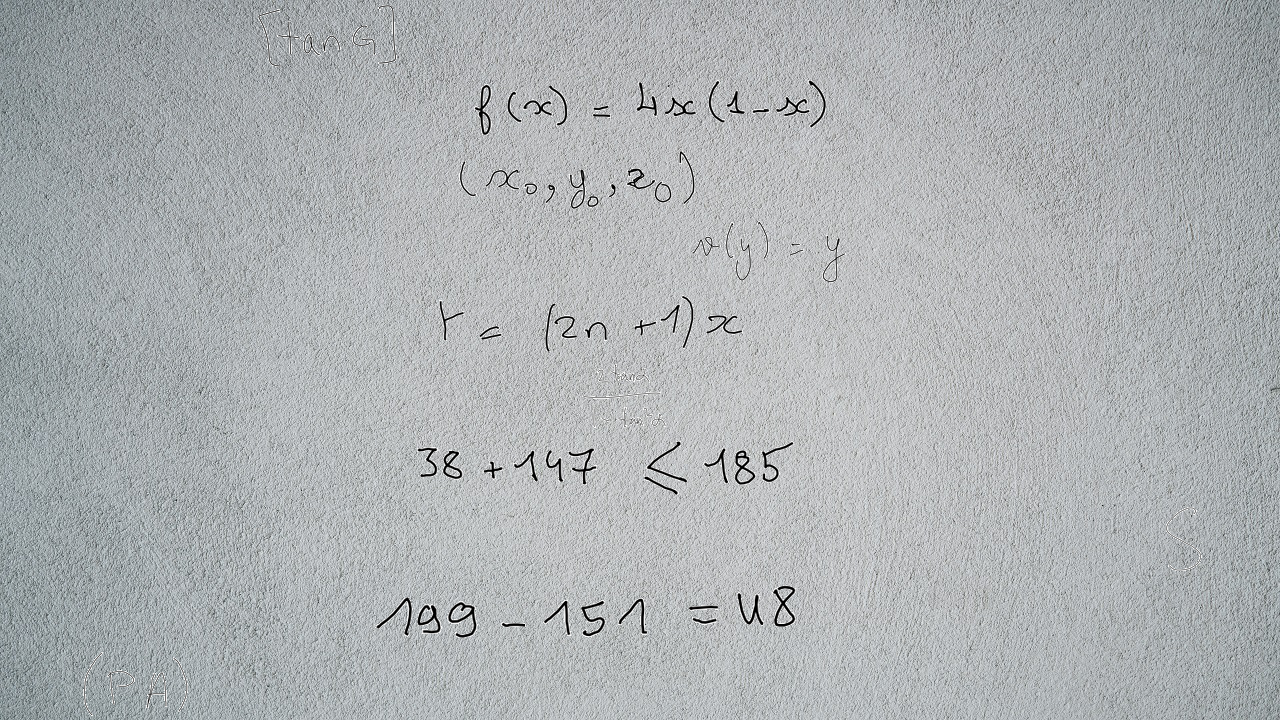 [tan G]
f(x) = 4x(1-x)
(x₀, y₀, z₀)
v(y) = y
r = (2n+1)x
38 + 147 ≤ 185
199 - 151 = 48
(PA)